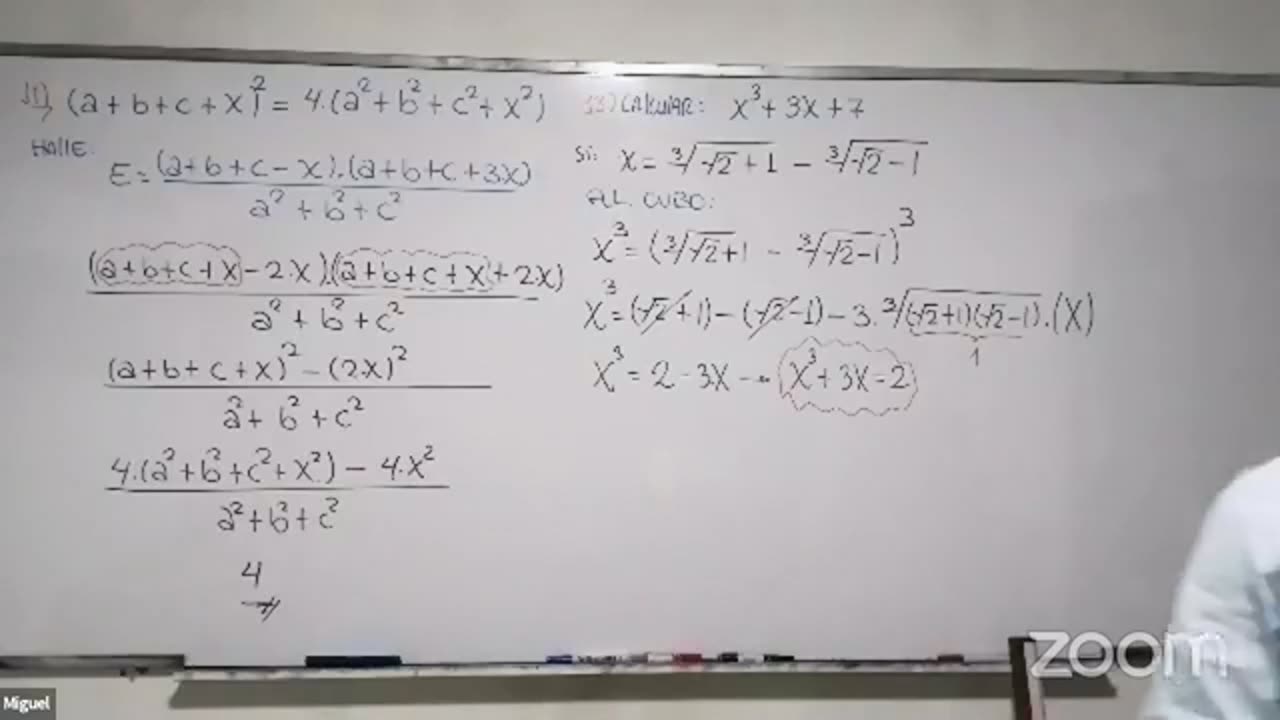 11) (a+b+c+x)² = 4.(a²+b²+c²+x²)
HALLE:
E = (a+b+c-x).(a+b+c+3x)
a²+b²+c²
(a+b+c+x-2.x).(a+b+c+x+2.x)
a²+b²+c²
(a+b+c+x)²-(2x)²
a²+b²+c²
4.(a²+b²+c²+x²) - 4.x²
a²+b²+c²
4
CALCULAR: x³+3x+7
Si: x = ∛(√2+1) - ∛(√2-1)
AL CUBO:
x³ = (∛(√2+1) - ∛(√2-1))³
x³ = (√2+1)-(√2-1)-3.∛((√2+1)(√2-1)).(x)
1
x³ = 2-3x → x³+3x=2
zoom
Miguel